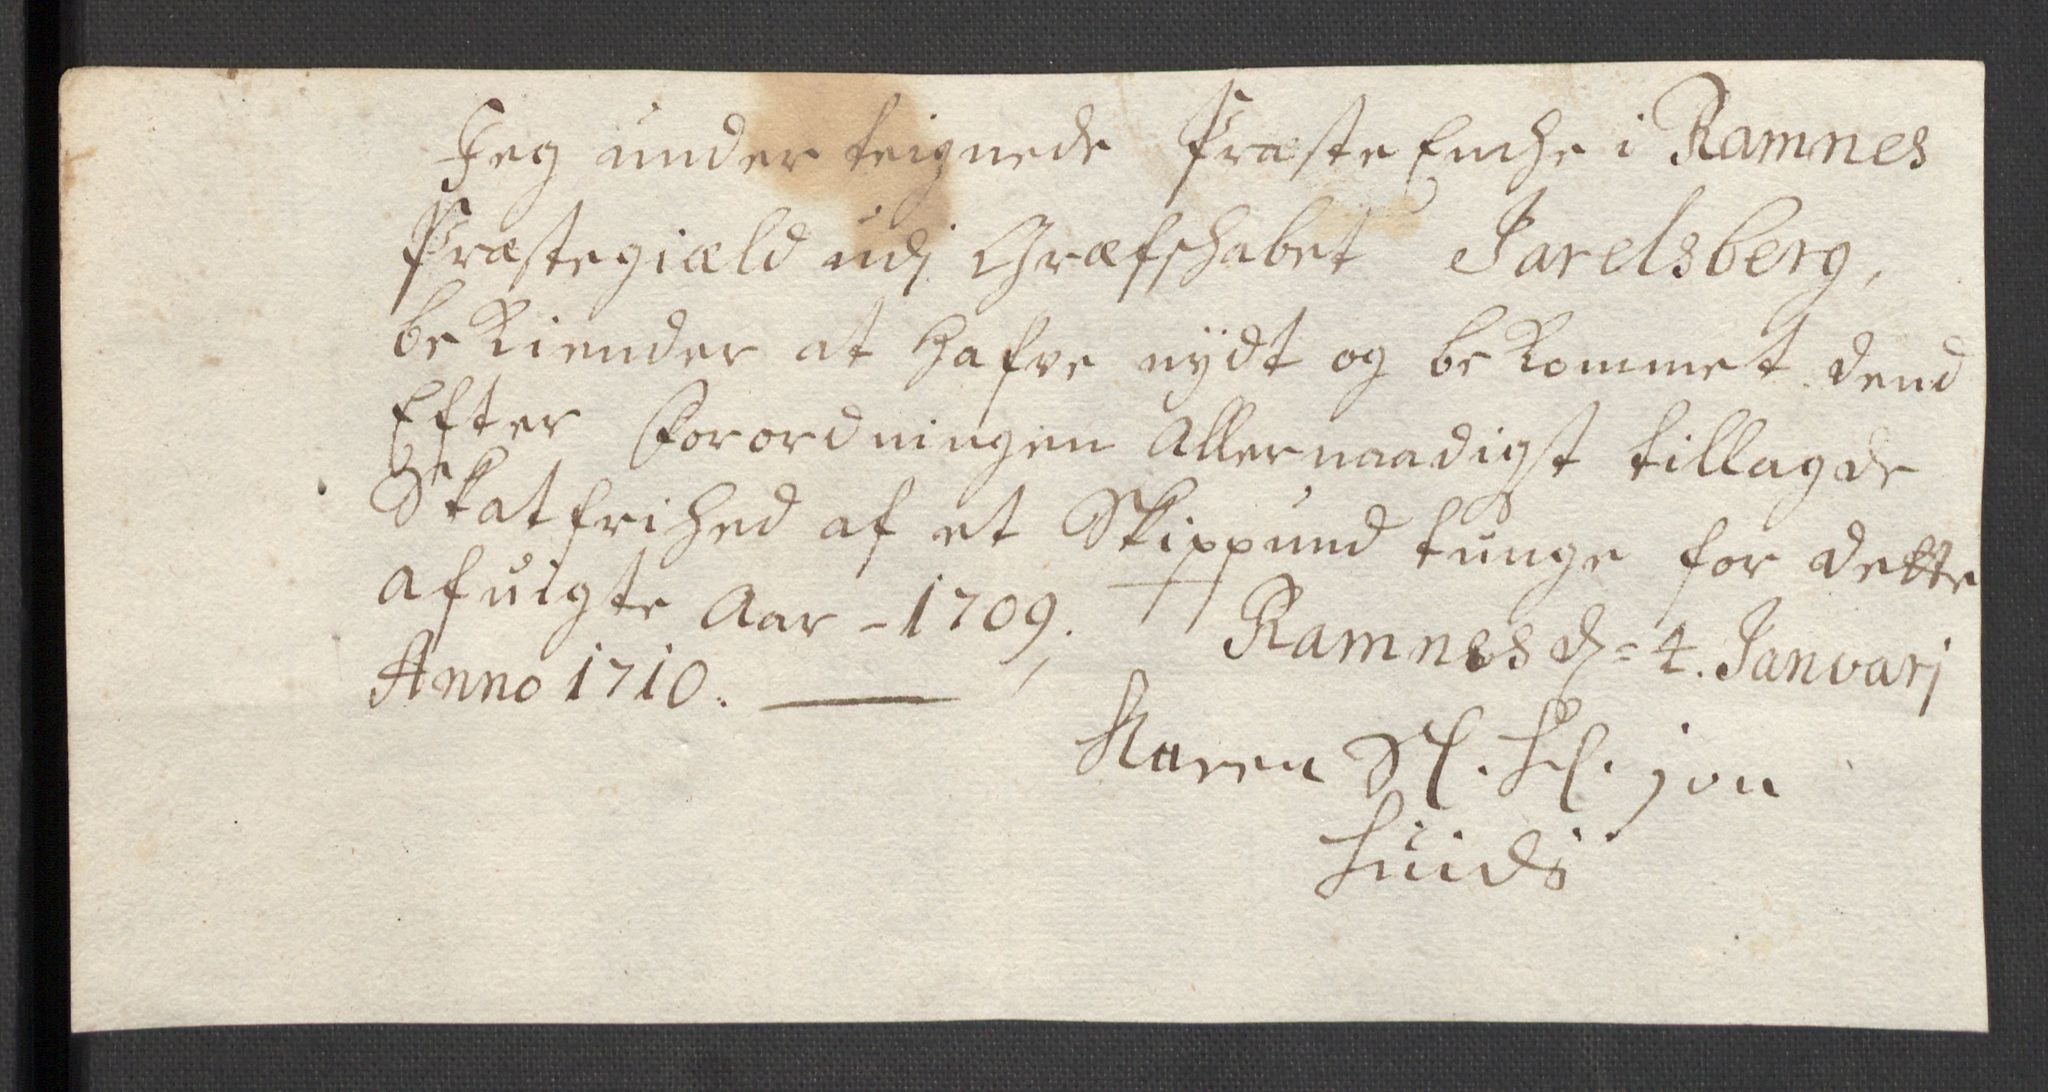 Jeg under teignede Præste Enche i Ramnes
Præstegiæld udj Græfschabet Jarelsberg,
be Kiender at hafve nÿdt og be Kommet dend
Efter Forordningen Allernaadigst tillagde
Skatfrihed af et Skippund tunge for dette
afuigte Aar - 1709. Ramnes d. 4. Janvarj
Anno 1710.
Karen Sl. Hl. jon